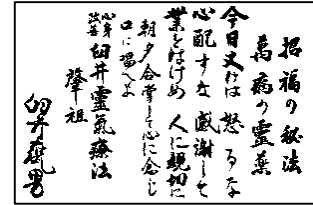 招福の秘法
萬病の霊薬
今日丈けは 怒るな
心配すな 感謝して
業をはげめ 人に親切に
朝夕合掌して心に念じ
口に唱へよ
心身
改善 臼井靈氣療法
肇祖
臼井甕男